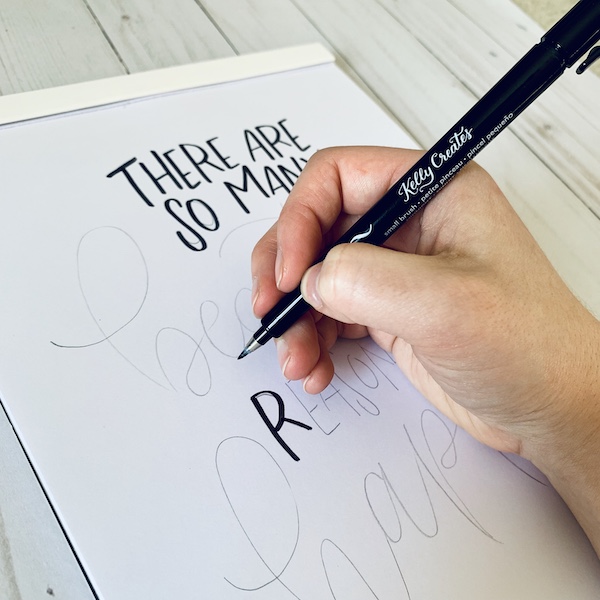 THERE ARE
SO MANY
REASON
hap
Kelly Creates
small brush • petite pinceau • pincel pequeño